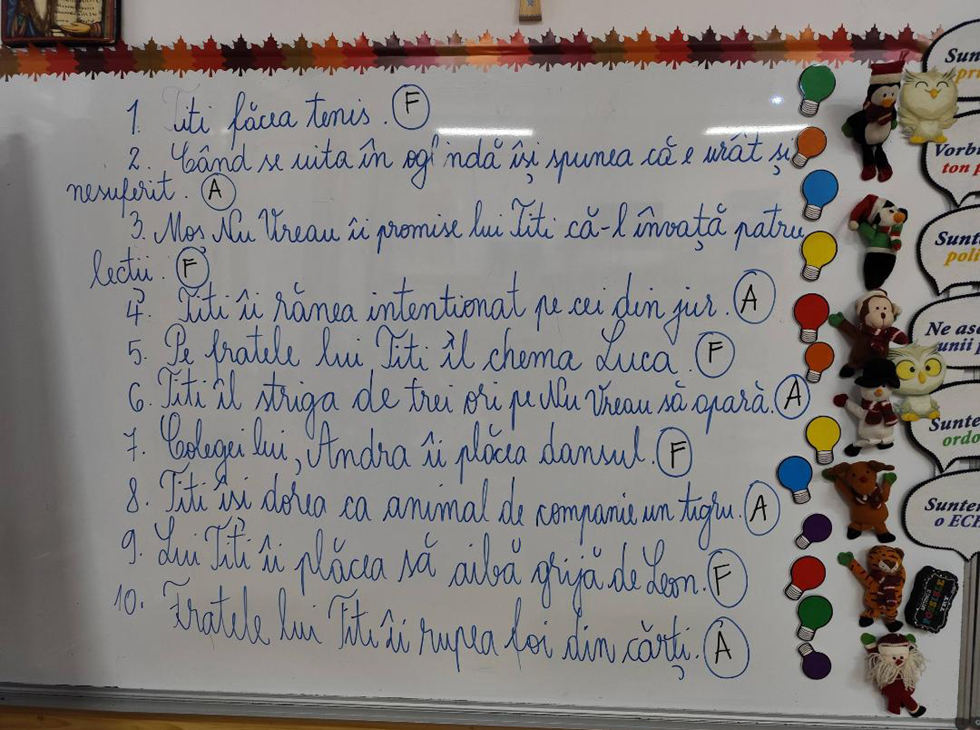 1. Titi făcea tenis. F
2. Când se uita în oglindă își spunea că e urât și
nesuferit. A
3. Moș Nu Vreau îi promise lui Titi că-l învață patru
lecții. F
4. Titi îi rănea intenționat pe cei din jur. A
5. Pe fratele lui Titi îl chema Luca. F
6. Titi îl striga de trei ori pe Nu Vreau să apară. A
7. Colegei lui, Andra îi plăcea dansul. F
8. Titi își dorea ca animal de companie un tigru. A
9. Lui Titi îi plăcea să aibă grijă de Leon. F
10. Fratele lui Titi îi rupea foi din cărți. A
Sun
Vorb
ton p
Sunt
poli
Ne as
unii
Sunte
ordo
Sunte
o ECH